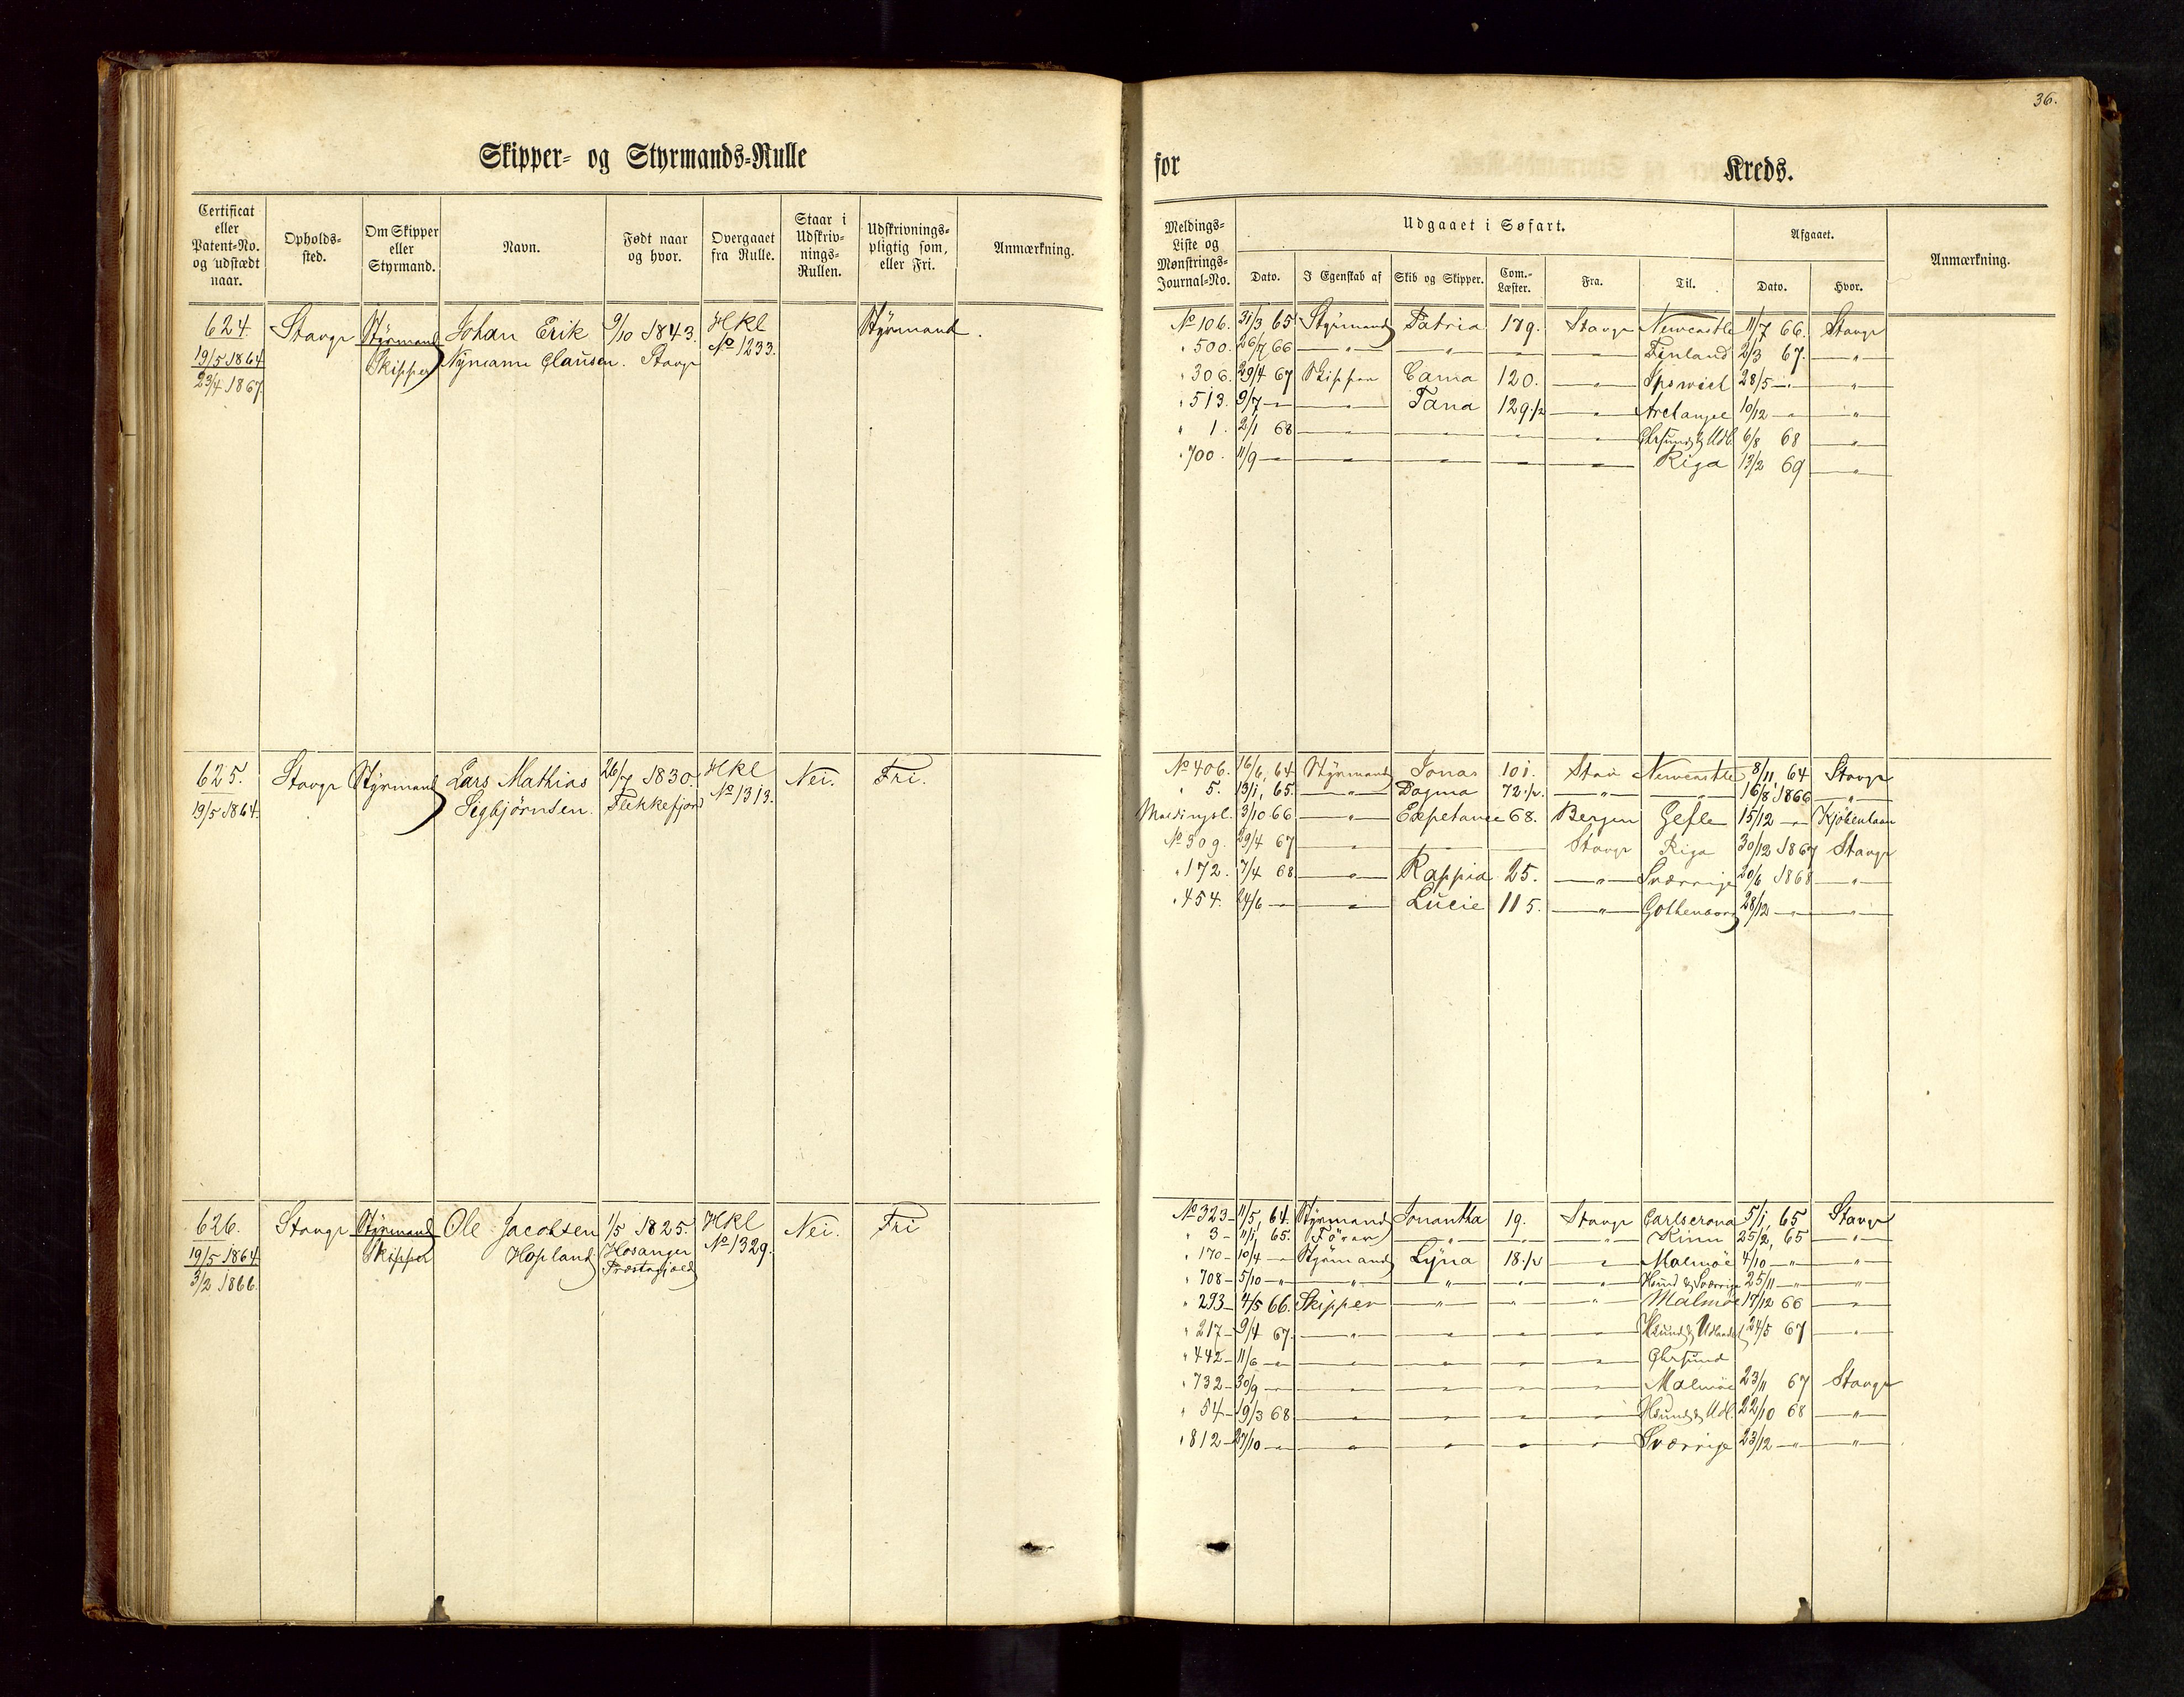 36.
Skipper- og Styrmands-Rulle
for Kreds.
Certificat eller Patent-No. og udstædt naar. | Opholds-sted. | Om Skipper eller Styrmand. | Navn. | Født naar og hvor. | Overgaaet fra Rulle. | Staar i Udskriv-nings-Rullen. | Udskrivnings-pligtig som, eller Fri. | Anmærkning.
624. Stavgr Styrmand Johan Erik 9/10 1843. HKl Styrmand.
19/5 1864 Skipper Nymann Clausen. Stavgr No 1233.
23/4 1867
625. Stavgr Styrmand Lars Mathias 26/7 1830. HKl Nei. Fri.
19/5 1864. Sigbjørnsen. Flekkefjord No 1313.
626. Stavgr Styrmand Ole Jacobsen 1/5 1825. HKl Nei. Fri
19/5 1864. Skipper Hopland Hosanger No 1329.
3/2 1866. Præstegjæld
Meldings-Liste og Mønstrings-Journal-No. | Udgaaet i Søfart. | Afgaaet. | Anmærkning.
Dato. | I Egenskab af | Skib og Skipper. | Com.-Læster. | Fra. | Til. | Dato. | Hvor.
No 106. 31/3 65 Styrmand Patria 179. Stavgr Newcastle 11/7 66. Stavgr
" 500. 26/7 66 — " — — " — — — " — Finland 2/3 67. — " —
" 306. 29/4 67 Skipper Cama 120. — " — Ipswich 28/5 — " — "
" 513. 9/7 — " — " — Tana 129 1/2 — " — Archangel 10/12 — " — " —
" 1. 2/1 68 — " — — " — — " — — " — Ghrsund & Udl. 6/8 68 — " —
" 700. 11/9 — " — — " — — " — — " — — " — Riga 13/2 69 — " —
No 406. 16/6, 64 Styrmand Jonas 101. Stav Newcastle 8/11 64 Stavgr
" 5. 13/1, 65. — " — Dagma 72 1/2. — " — — " — 16/8 1866 — " —
Meldingsl. 3/10 66 — " — Expetance 68. Bergen Gefle 15/12 — " — Kjöbenhavn
No 309. 29/4 67 — " — — — Stavgr Riga 30/12 1867 Stavgr
" 172. 7/4 68 — " — Rappia 25. — " — Sverrige 20/6 1868 — " —
" 454. 24/6 — " — " — Lucie 115. — " — Gothenborg 28/12 — " — " —
No 323 — 11/5, 64. Styrmand Jonantha 19. Stavgr Carlscrona 5/1, 65 Stavgr
" 3 — 11/1, 65. Förer — " — — " — — " — Kinn 25/2, 65 — " —
" 170 — 10/4 — " Styrmand Lyna 18 1/2 — " — Malmöe 4/10 — " — " —
" 708 — 5/10 — " — " — — " — — " — — " — Hsund & Sverrige 25/11 — " — " —
" 293 — 4/5 66. Skipper — " — — " — — " — Malmöe 17/12 66 — " —
" 217 — 9/4 67. — " — — " — — " — — " — Hsund & Udlandet 24/5 67 — " —
" 442 — 11/6 — " — " — — " — — " — — " — Ghrsund
" 732 — 30/9 — " — " — — " — — " — — " — Malmöe 23/11 67 Stavgr
" 54 — 19/3 68 — " — — " — — " — — " — Hsund & Udl. 22/10 68 — " —
" 812 — 27/10 — " — " — — " — — " — — " — Sverrige 23/12 — " — " —